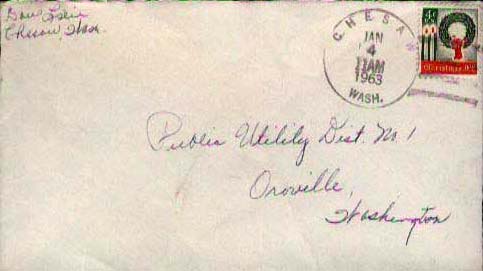 Chesaw, Wash.
CHESAW
JAN
4
11AM
1963
WASH.
4¢
Christmas 1962
Public Utility Dist. No 1
Oroville,
Washington